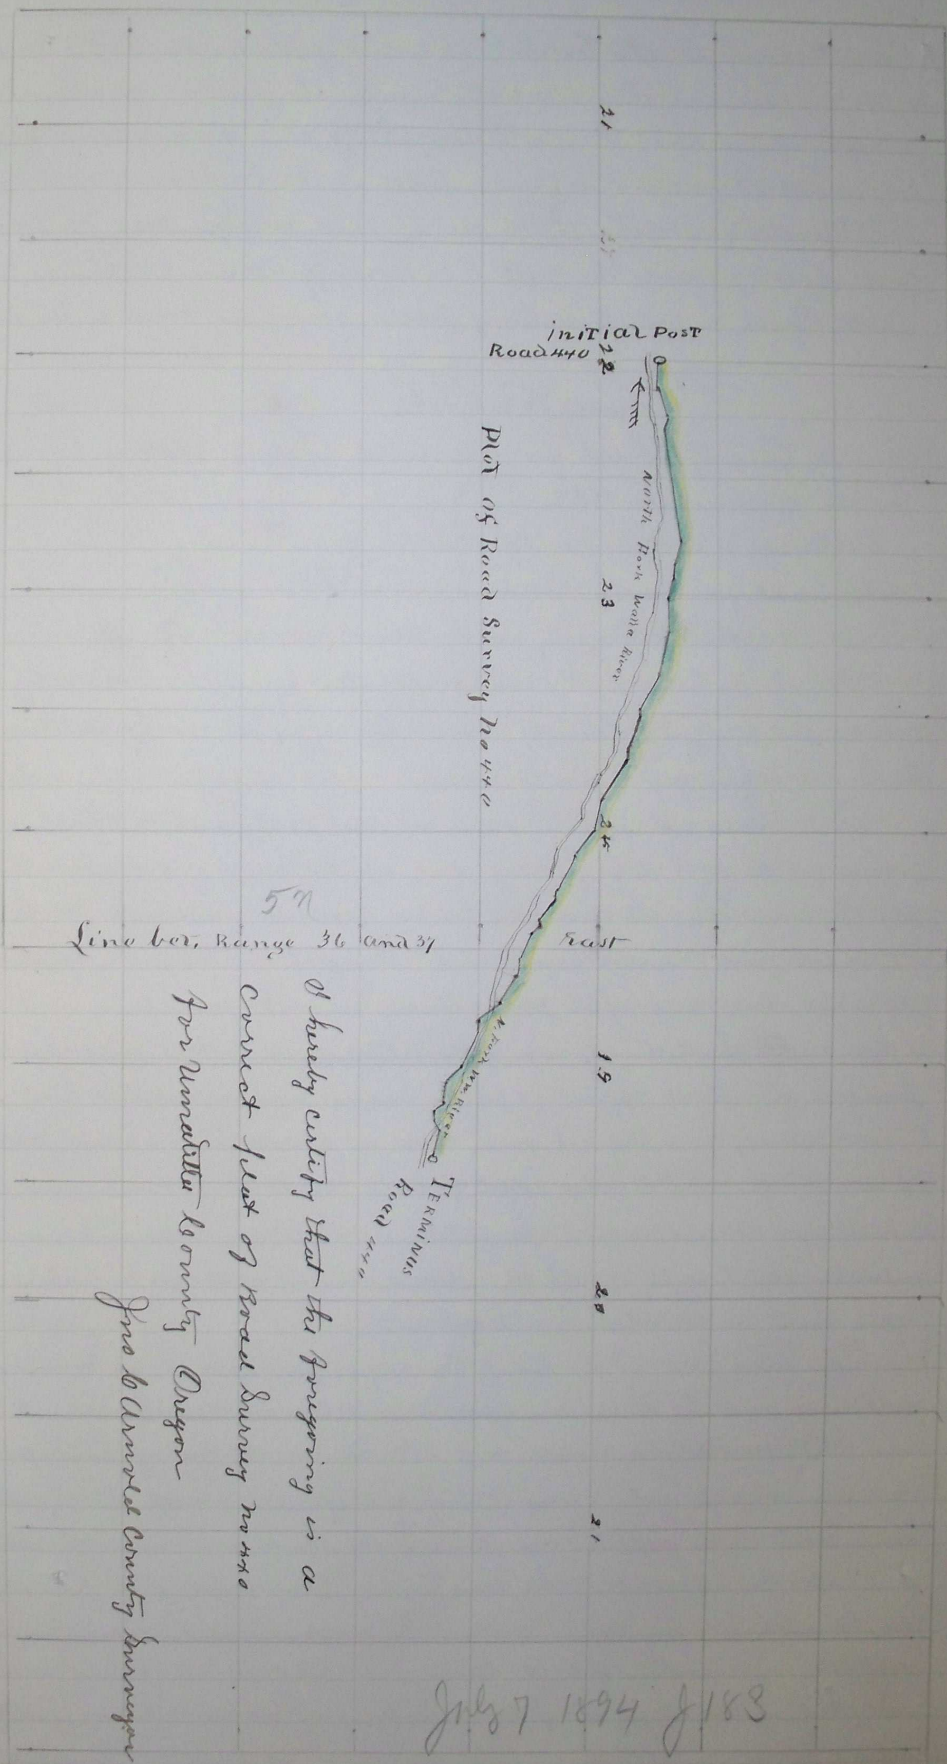 21
initial Post
Road 440
22
North Fork Walla River
Plot of Road Survey No 440
23
24
5 N
Line bet. Range 36 and 37 East
N. Fork W.W. River
19
Terminus
Road 440
20
21
I hereby certify that the foregoing is a
correct plat of Road Survey No 440
for Umatilla County Oregon
Jno C Arnold County Surveyor
July 7 1894 J 183